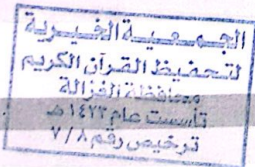 الجمعية الخيرية
لتحفيظ القرآن الكريم
بمحافظة الغزالة
تأسست عام ١٤٢٢ هـ
ترخيص رقم ٧/٨